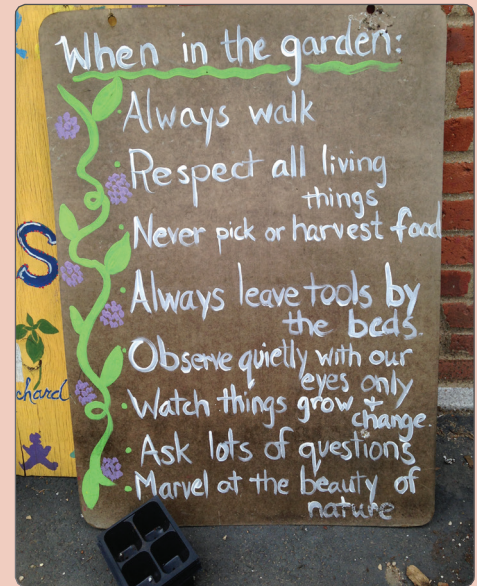 When in the garden:
Always walk
Respect all living
things
Never pick or harvest food
Always leave tools by
the beds.
Observe quietly with our
eyes only
Watch things grow +
change.
Ask lots of questions
Marvel at the beauty of
nature
S
chard